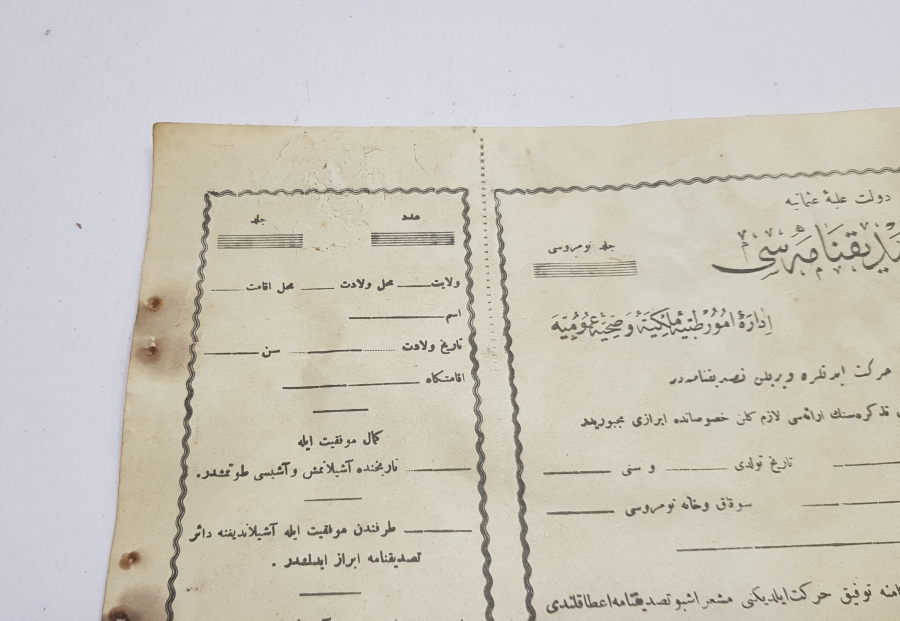 دولت علیهٔ عثمانیه
جلد نومروسی
ادارهٔ امور طبیهٔ ملکیه و صحیهٔ عمومیه
حرکت ایدنلره ویریلن تصدیقنامه‌در
تذکره‌سنك ارائه‌سی لازم کلن خصوصاتده ابرازی مجبوریدر
تاریخ تولدی و سنی
سوقاق وخانه نومروسی
توفیق حرکت ایلدیکنی مشعر اشبو تصدیقنامه اعطا قلندی
عدد جلد
ولایت محل ولادت محل اقامت
اسم
تاریخ ولادت سن
اقامتکاه
کمال موفقیت ایله
تاریخنده آشیلانمش و آشیسی طوتمشدر.
طرفندن موفقیت ایله آشیلاندیغنه دائر
تصدیقنامه ابراز ایدلمشدر .